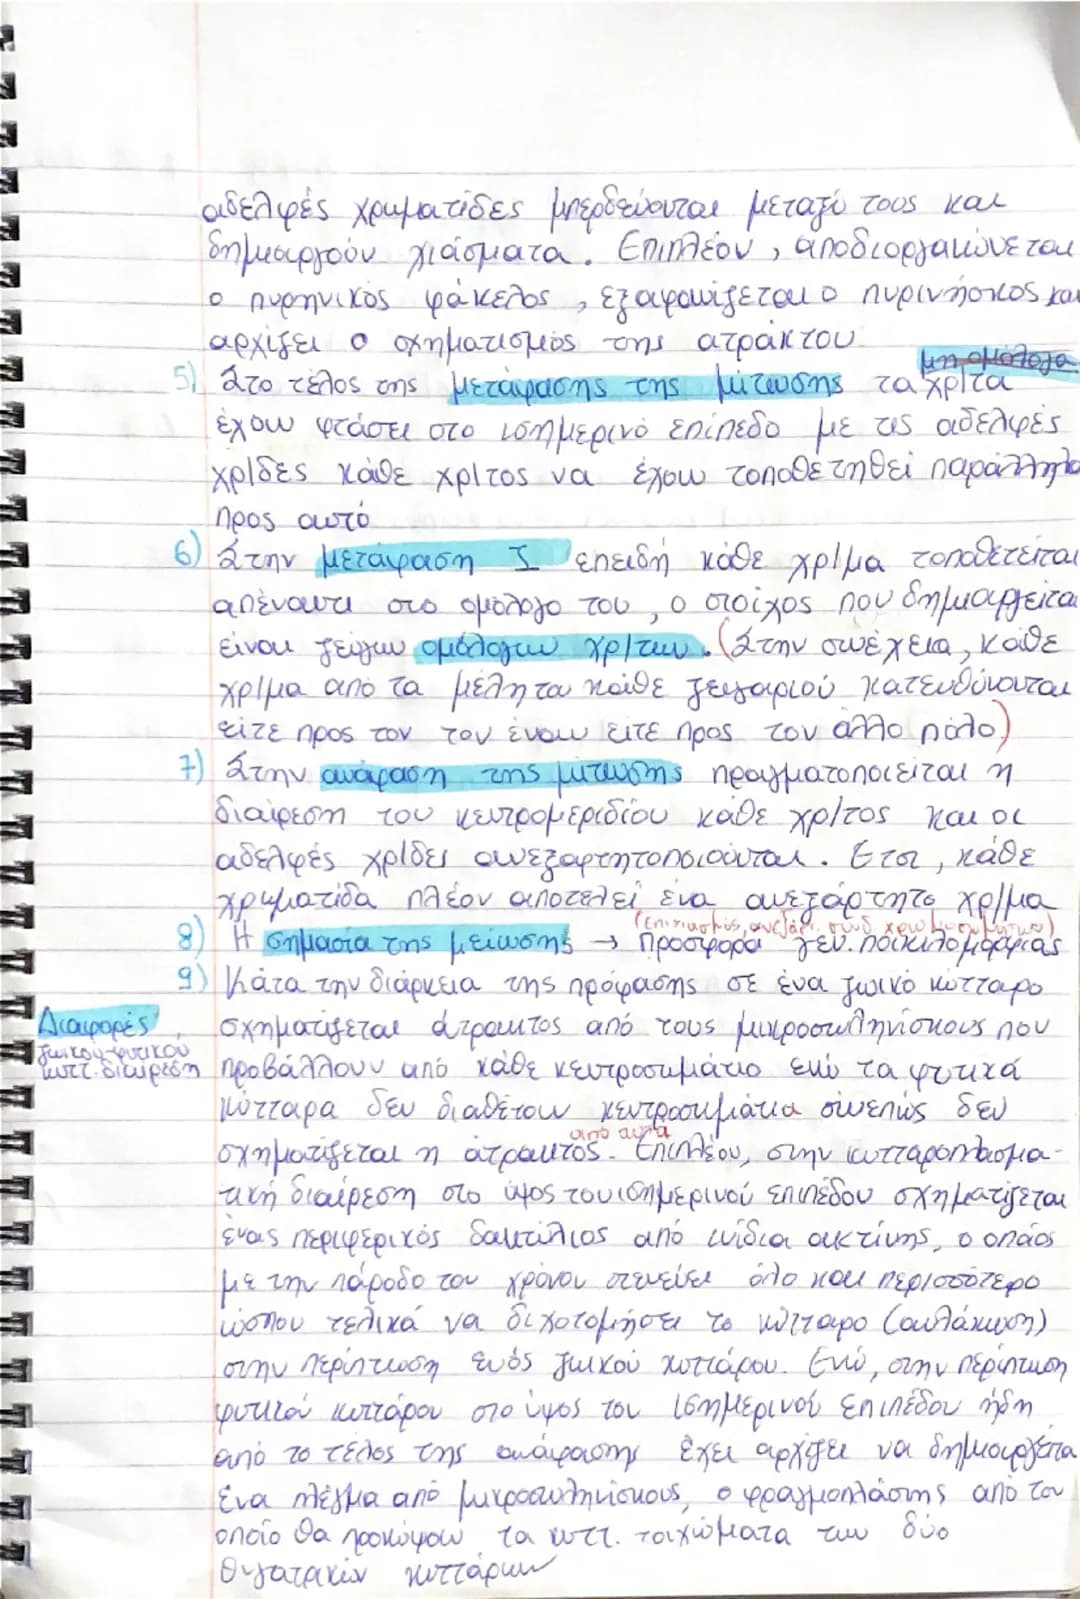 αδελφές χρωματίδες μπερδεύονται μεταξύ τους και
δημιουργούν χιάσματα. Επιπλέον, αποδιοργανώνεται
ο πυρηνικός φάκελος, εξαφανίζεται ο πυρινήσκος και
αρχίζει ο σχηματισμός της ατράκτου.
μη ομόλογα
5) Στο τέλος της μετάφασης της μίτωσης τα χρ/τα
έχουν φτάσει στο ισημερινό επίπεδο με τις αδελφές
χρ/δες κάθε χρ/τος να έχουν τοποθετηθεί παράλληλα
προς αυτό
6) Στην μετάφαση I επειδή κάθε χρ/μα τοποθετείται
απέναντι στο ομόλογο του, ο στοίχος που δημιουργείται
είναι ζεύγων ομόλογων χρ/των. (Στην συνέχεια, κάθε
χρ/μα από τα μέλη του κάθε ζευγαριού κατευθύνονται
είτε προς τον τον έναν είτε προς τον άλλο πόλο)
7) Στην ανάφαση της μίτωσης πραγματοποιείται η
διαίρεση του κεντρομεριδίου κάθε χρ/τος και οι
αδελφές χρ/δες ανεξαρτητοποιούνται. Έτσι, κάθε
χρωματίδα πλέον αποτελεί ένα ανεξάρτητο χρ/μα
(επιχιασμός, ανεξάρ. συνδ. χρωμοσωμάτων)
8) Η σημασία της μείωσης → Προσφορά γεν. ποικιλομορφίας
9) Κάτα την διάρκεια της πρόφασης σε ένα ζωικό κύτταρο
Διαφορές
ζωικού-φυτικού
κυττ. διαίρεση
σχηματίζεται άτρακτος από τους μικροσωληνίσκους που
προβάλλουν από κάθε κεντροσωμάτιο ενώ τα φυτικά
κύτταρα δεν διαθέτουν κεντροσωμάτια συνεπώς δεν
από αυτά
σχηματίζεται η άτρακτος. Επιπλέον, στην κυτταροπλασμα-
τική διαίρεση στο ύψος του ισημερινού επιπέδου σχηματίζεται
ένας περιφερικός δακτύλιος από ινίδια ακτίνης, ο οποίος
με την πάροδο του χρόνου στενεύει όλο και περισσότερο
ώσπου τελικά να διχοτομήσει το κύτταρο (αυλάκωση)
στην περίπτωση ενός ζωικού κυττάρου. Ενώ, στην περίπτωση
φυτικού κυττάρου στο ύψος του ισημερινού επιπέδου ήδη
από το τέλος της ανάφασης έχει αρχίζει να δημιουργείται
ένα πλέγμα από μικροσωληνίσκους, ο φραγμοπλάστης από τον
οποίο θα προκύψουν τα κυττ. τοιχώματα των δύο
θυγατρικών κυττάρων